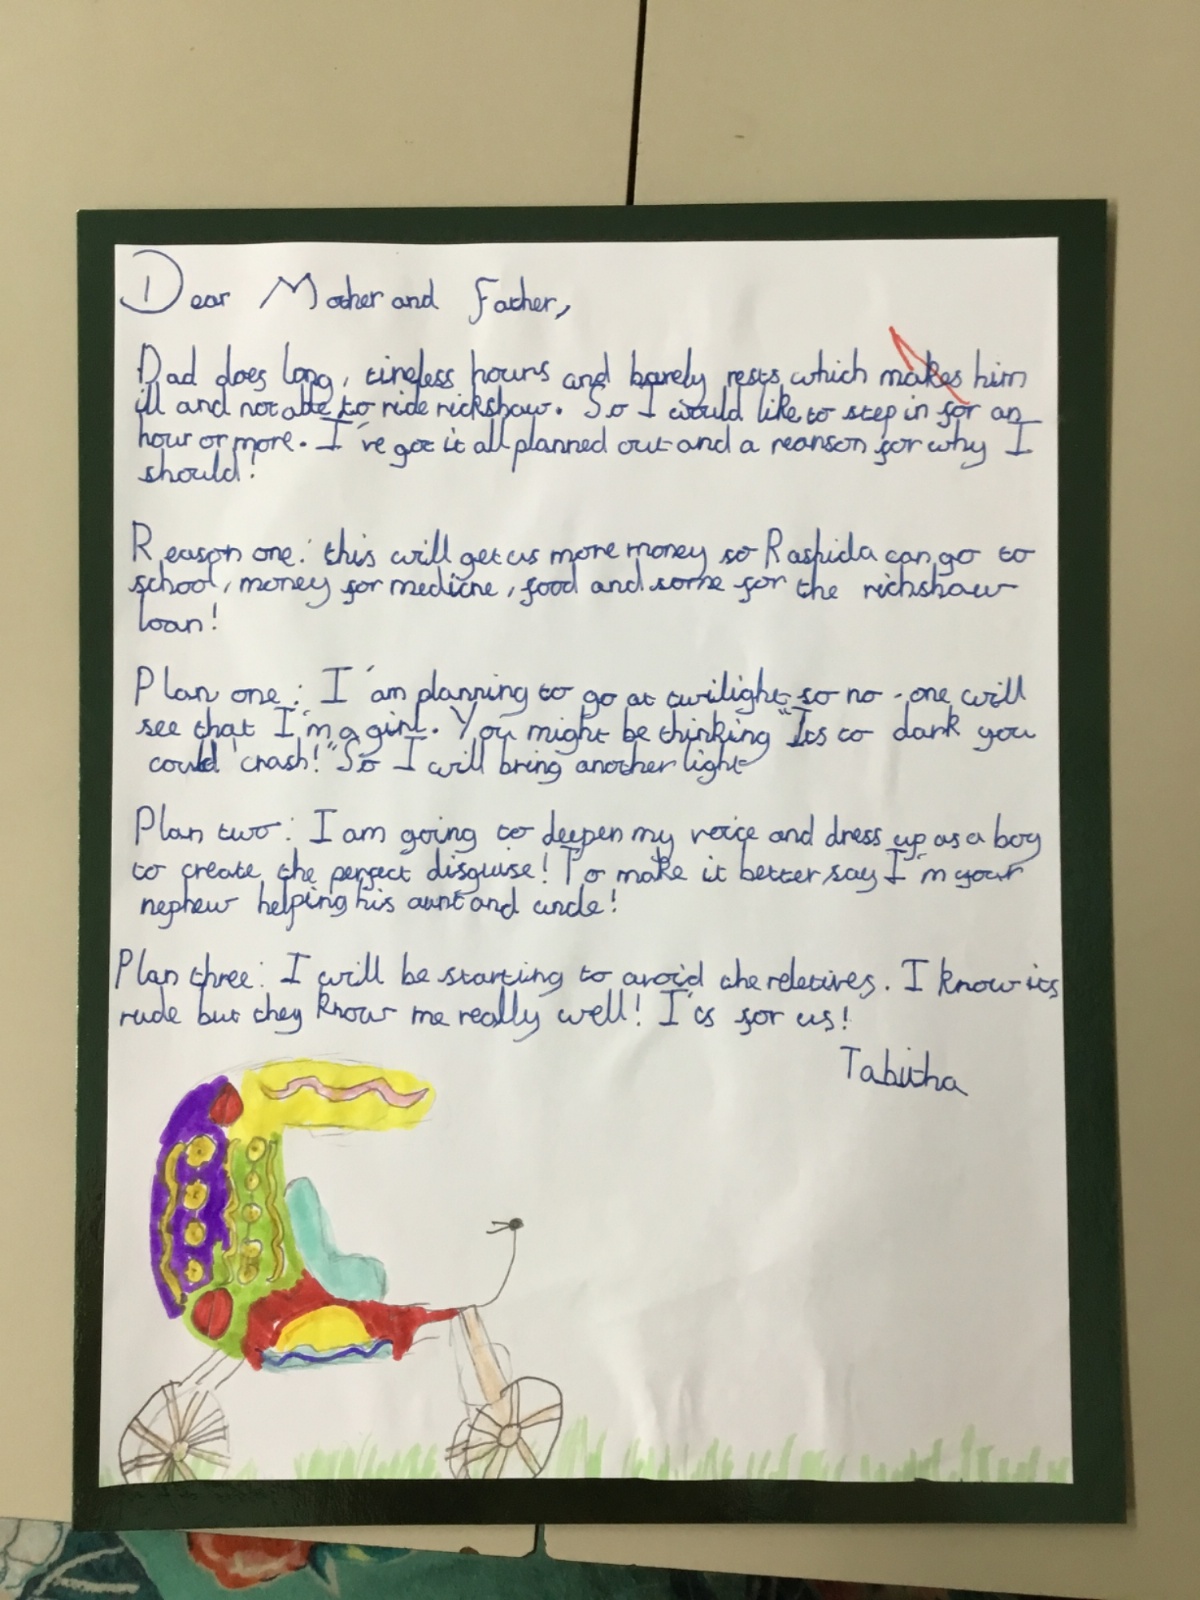 Dear Mother and Father,
Dad does long, tireless hours and barely rests which makes him
ill and not able to ride rickshaw. So I would like to step in for an
hour or more. I've got it all planned out and a reanson for why I
should!
Reason one: this will get us more money so Rashida can go to
school, money for medicne, food and some for the richshaw
loan!
Plan one: I'am planning to go at twilight so no-one will
see that I'm a girl. You might be thinking "Its to dark you
could crash!" So I will bring another light
Plan two: I am going to deepen my voice and dress up as a boy
to create the perfect disguise! To make it better say I'm your
nephew helping his aunt and uncle!
Plan three: I will be starting to avoid the reletives. I know its
rude but they know me really well! I'ts for us!
Tabitha